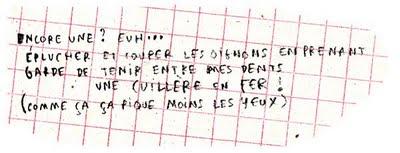 ENCORE UNE ? EUH...
ÉPLUCHER ET COUPER LES OIGNONS EN PRENANT
GARDE DE TENIR ENTRE MES DENTS
UNE CUILLÈRE EN FER !
(COMME ÇA ÇA PIQUE MOINS LES YEUX)